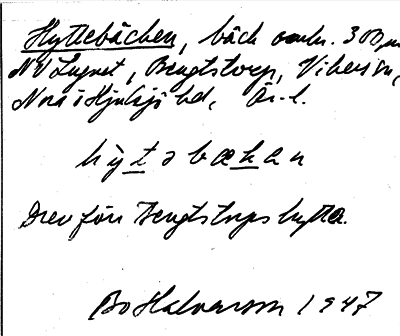 Hyttebäcken, bäck omkr. 300 m
NV Lugnet, Bengtstorp, Vikers sn,
Nora i Hjulsjö bd, Ör. l.
hỳtəbækan
Drev förr Bengtstorps hytta.
Bo Halvarsson 1947